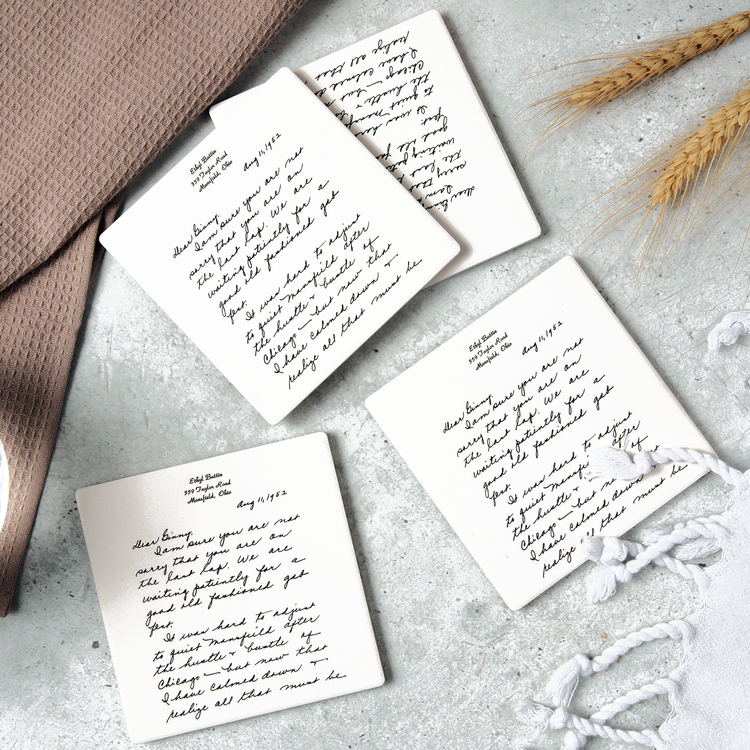 Ethyl
339 Taylor Road
Mansfield, Ohio
Aug 11, 1952
Dear Ginny,
I am sure you are not
sorry that you are on
the last lap. We are
waiting patiently for a
good old fashioned gab
fest.
It was hard to adjust
to quiet Mansfield after
the hustle + bustle of
Chicago — but now that
I have calmed down +
realize all that must be
Dear Ginny,
I am
sorry
the last
waiting
good old
fest. It was
to quiet
the hustle +
Chicago —
I have calmed
realize all that
Ethyl
339 Taylor Road
Mansfield, Ohio
Aug 11, 1952
Dear Ginny,
I am sure you are not
sorry that you are on
the last lap. We are
waiting patiently for a
good old fashioned gab
fest.
It was hard to adjust
to quiet Mansfield after
the hustle + of
Chicago — but
I have calmed down
realize all that must be
Ethyl
339 Taylor Road
Mansfield, Ohio
Aug 11, 1952
Dear Ginny,
I am sure you are not
sorry that you are on
the last lap. We are
waiting patiently for a
good old fashioned gab
fest.
It was hard to adjust
to quiet Mansfield after
the hustle + bustle of
Chicago — but now that
I have calmed down +
realize all that must be